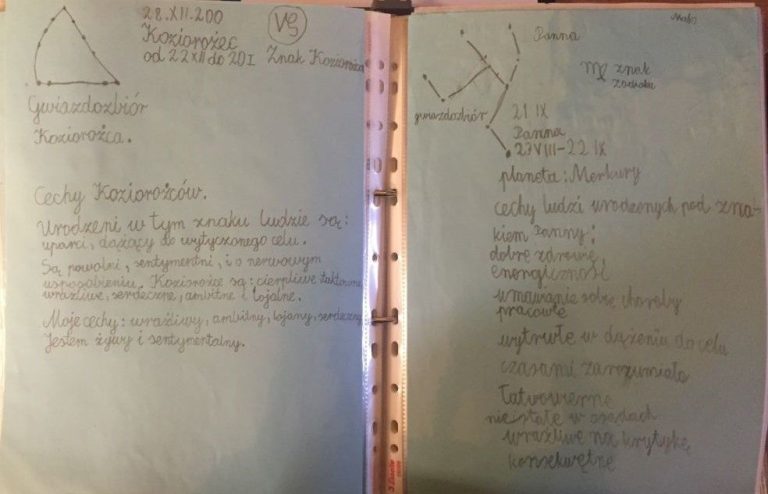 28.XII.200
Koziorożec
od 22XII do 20I
Znak Koziorożca
Gwiazdozbiór
Koziorożca.
Cechy Koziorożców.
Urodzeni w tym znaku ludzie są:
uparci, dążący do wytyczonego celu.
Są powolni, sentymentni, i o nerwowym
usposobieniu. Koziorożce są: cierpliwe taktowne
wrażliwe, serdeczne, ambitne i lojalne.
Moje cechy: wrażliwy, ambitny, lojany, serdeczny
Jestem żywy i sentymentalny.
Panna
znak
zodiaku
gwiazdozbiór
21 IX
Panna
23VIII-22 IX
planeta: Merkury
cechy ludzi urodzonych pod zna-
kiem Panny:
dobre zdrowie
energiczność
wmawianie sobie choroby
pracowite
wytrwłe w dążeniu do celu
czasami zarozumiałe
łatwowierne
nie stałe w osądach
wrażliwe na krytykę
konsekwętne